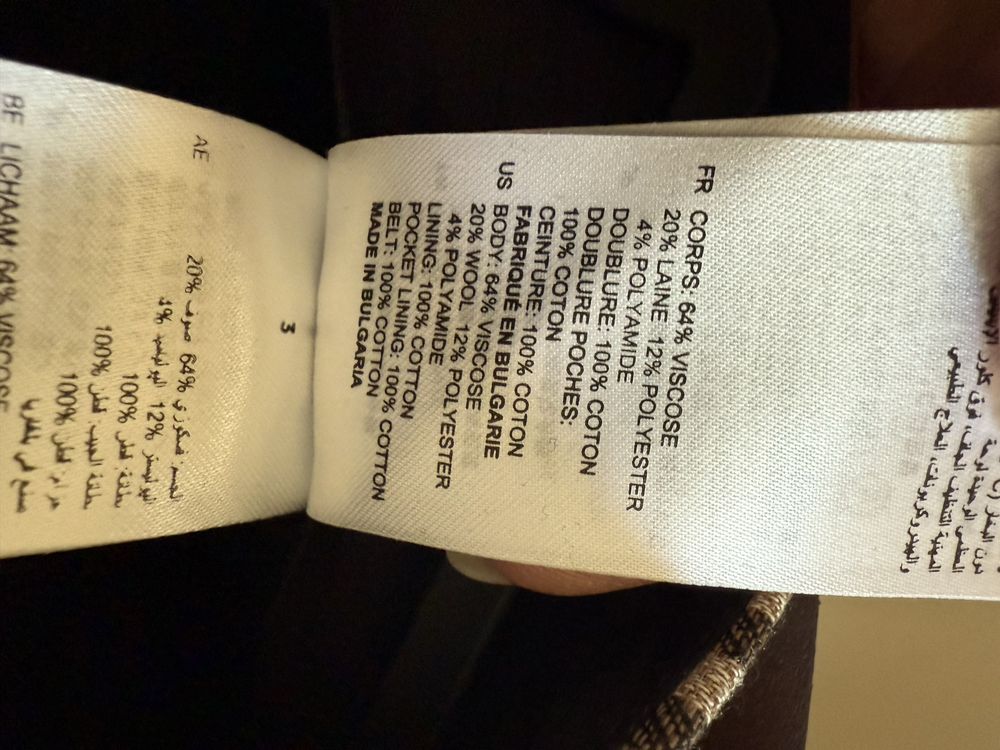 FR CORPS: 64% VISCOSE
20% LAINE 12% POLYESTER
4% POLYAMIDE
DOUBLURE: 100% COTON
DOUBLURE POCHES:
100% COTON
CEINTURE: 100% COTON
FABRIQUÉ EN BULGARIE
US BODY: 64% VISCOSE
20% WOOL 12% POLYESTER
4% POLYAMIDE
LINING: 100% COTTON
POCKET LINING: 100% COTTON
BELT: 100% COTTON
MADE IN BULGARIA
3
AE
الجسم: فسكوزي 64% صوف 20%
البوليستر 12% البولياميد 4%
بطانة: قطن 100%
بطانة الجيب: قطن 100%
حزام: قطن 100%
صنع في بلغاريا
BE LICHAAM 64% VISCOSE